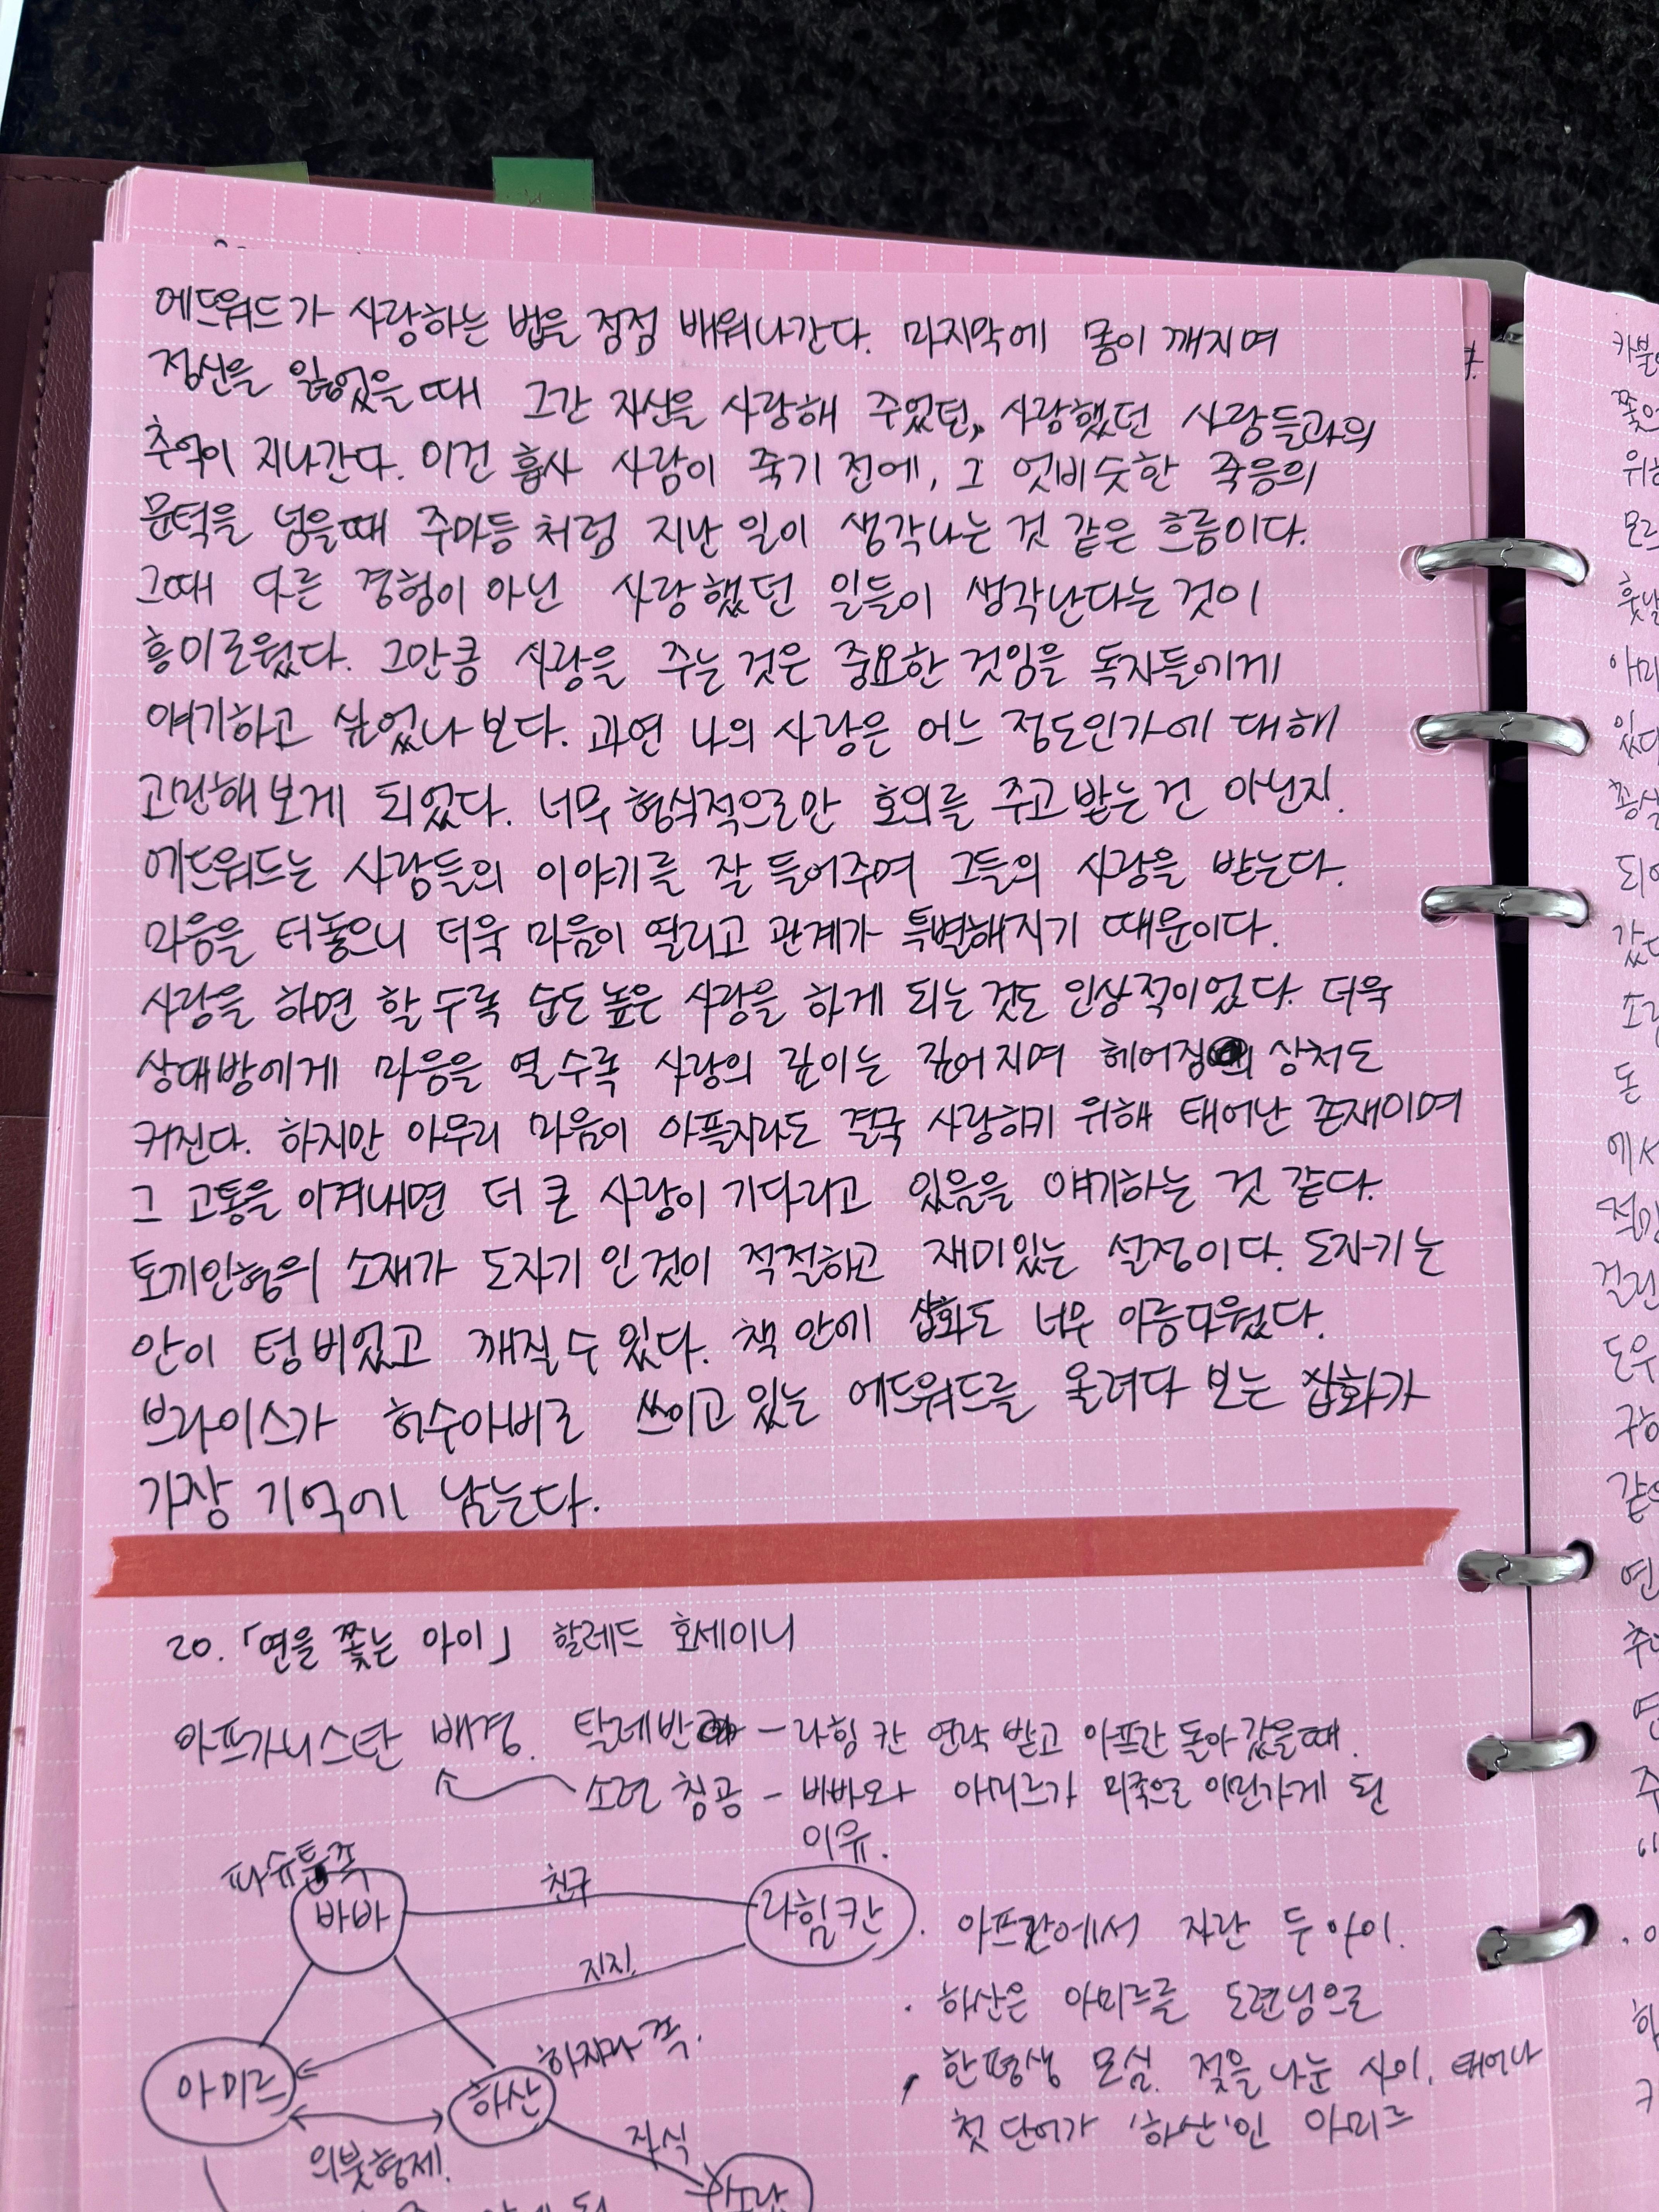 에드워드가 사랑하는 법을 점점 배워나간다. 마지막에 몸이 깨지며
정신을 잃었을 때 그간 자신을 사랑해 주었던, 사랑했던 사람들과의
추억이 지나간다. 이건 흡사 사람이 죽기 전에, 그 엇비슷한 죽음의
문턱을 넘을때 주마등처럼 지난 일이 생각나는 것 같은 흐름이다.
그때 다른 경험이 아닌 사랑했던 일들이 생각난다는 것이
흥미로웠다. 그만큼 사랑을 주는 것은 중요한 것임을 독자들에게
얘기하고 싶었나 보다. 과연 나의 사랑은 어느 정도인가에 대해
고민해보게 되었다. 너무 형식적으로만 호의를 주고 받는 건 아닌지.
에드워드는 사람들의 이야기를 잘 들어주며 그들의 사랑을 받는다.
마음을 터놓으니 더욱 마음이 열리고 관계가 특별해지기 때문이다.
사랑을 하면 할수록 순도 높은 사랑을 하게 되는 것도 인상적이었다. 더욱
상대방에게 마음을 열수록 사랑의 깊이는 깊어지며 헤어짐의 상처도
커진다. 하지만 아무리 마음이 아플지라도 결국 사랑하기 위해 태어난 존재이며
그 고통을 이겨내면 더 큰 사랑이 기다리고 있음을 얘기하는 것 같다.
토끼인형의 소재가 도자기 인것이 적절하고 재미있는 설정이다. 도자기는
안이 텅 비었고 깨질 수 있다. 책 안에 삽화도 너무 아름다웠다.
브라이스가 허수아비로 쓰이고 있는 에드워드를 올려다 보는 삽화가
가장 기억에 남는다.
20. 「연을 쫓는 아이」 할레드 호세이니
아프가니스탄 배경. 탈레반 - 라힘 칸 연락 받고 아프간 돌아갔을때.
소련 침공 - 바바와 아미르가 미국으로 이민가게 된
이유.
파슈툰족
바바
친구
라힘 칸
지지.
아미르
하산
하자라 족.
의붓형제.
자식
소랍
· 아프간에서 자란 두 아이.
· 하산은 아미르를 도련님으로
한평생 모심. 젖을 나눈 사이. 태어나
첫 단어가 '하산'인 아미르